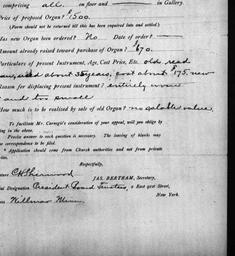 comprising all on floor and — in Gallery.
Price of proposed Organ? $1500.
(Form should not be returned till this has been required data and settled.)
Has new Organ been ordered? No Date of order
Amount already raised toward purchase of Organ? $670.
Particulars of present Instrument, Age, Cost Price, Etc. old reed
about 35 years, cost about $175. new
Reason for displacing present instrument? entirely worn
and too small
How much is to be realised by sale of old Organ? no salable value.
To facilitate Mr. Carnegie's consideration of your appeal, will you oblige by
in the above.
Precise answer to each question is necessary. The leaving of blanks may
correspondence to be filed.
Application should come from Church authorities and not from private
Respectfully,
JAS. BERTRAM, Secretary,
Designation President Board Trustees, 2 East 91st Street,
New York.
Willmar Minn.